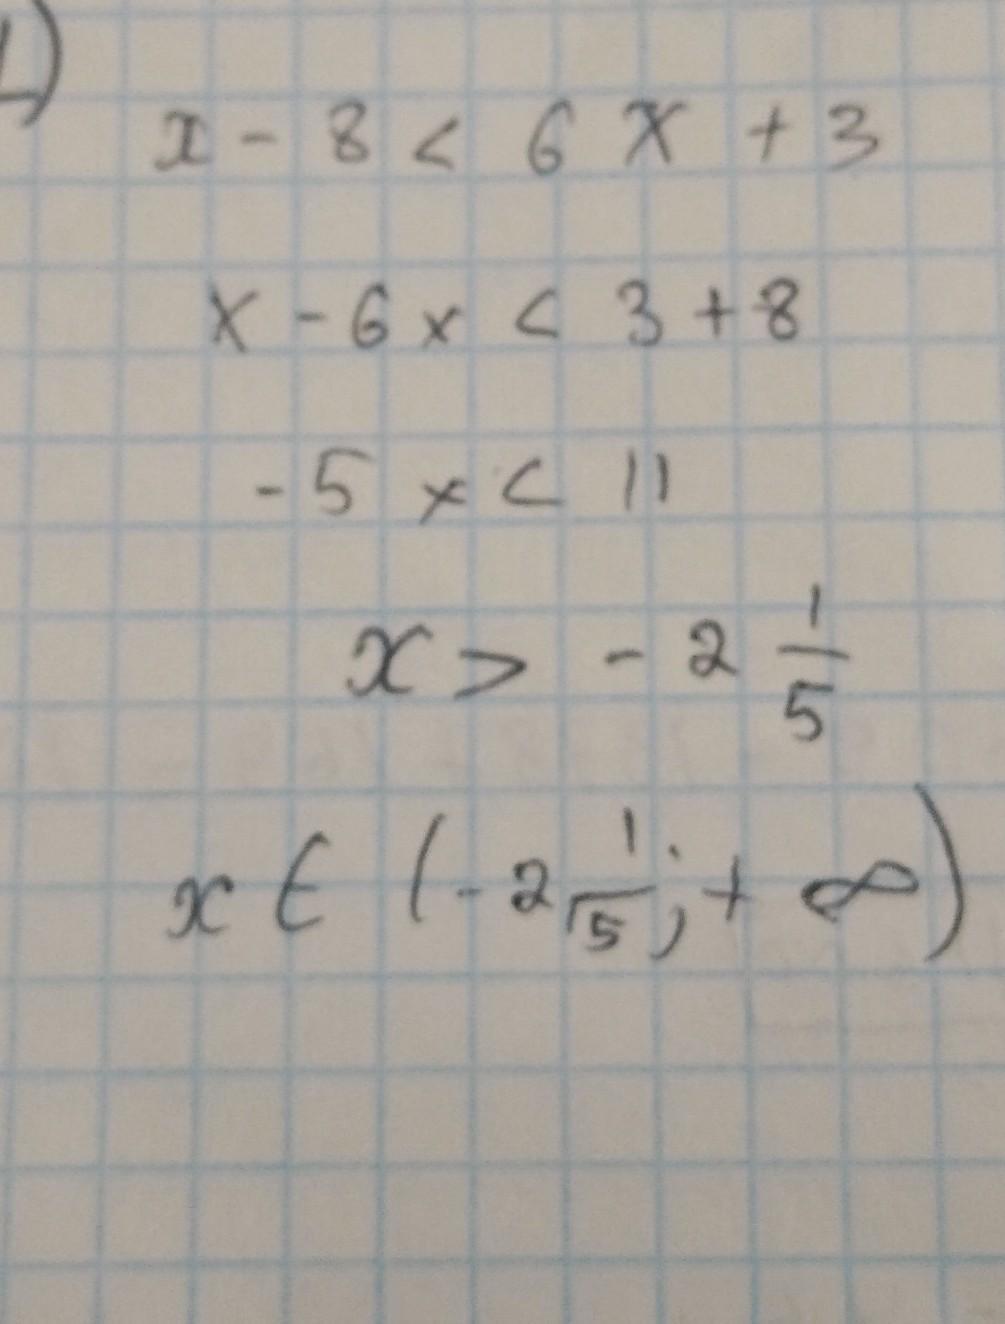 1)
x - 8 < 6x + 3
x - 6x < 3 + 8
-5x < 11
x > -2 1/5
x ∈ (-2 1/5; + ∞)